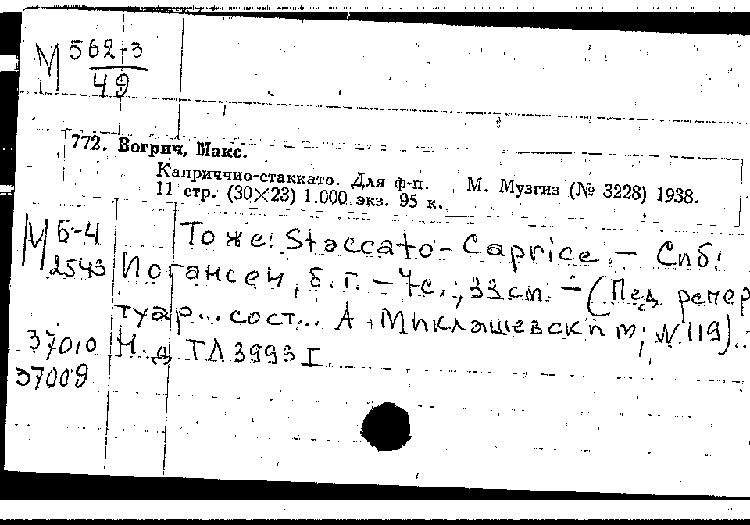 М 562-3
49
772. Вогрич, Макс.
Каприччио-стаккато. Для ф-п. М. Музгиз (№ 3228) 1938.
11 стр. (30×23) 1.000 экз. 95 к.
М Б-4 То же: Staccato-Caprice. — Спб:
2543 Иогансен, б. г. — 7с.; 33см. — (Пед. репер
туар... сост... А. Миклашевским; № 119).
37010 Н. д. ТЛ 3993 I
37009